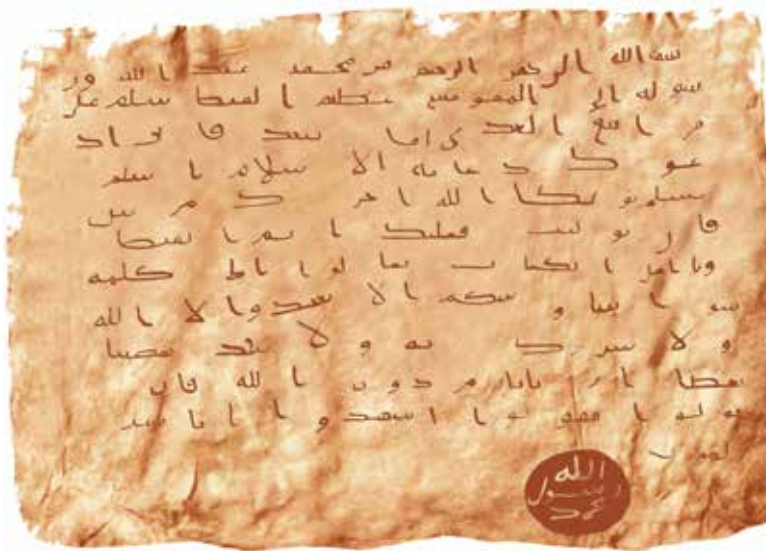 بسم الله الرحمن الرحيم من محمد عبد الله ور
سوله الى المقوقس عظيم القبط سلم على
من اتبع الهدى اما بعد فانى اد
عوك دعايه الاسلام اسلم
تسلم يوتك الله اجرك مرتين
فان توليت فعليك اثم القبط
ويا اهل الكتاب تعالوا الى كلمه
سوا بيننا و بينكم الا نعبد الا الله
و لا نشرك به و لا يتخذ بعضنا
بعضا اربابا من دون الله فان
تولوا فقولوا اشهدوا بانا مس
لمون
الله
رسول
محمد